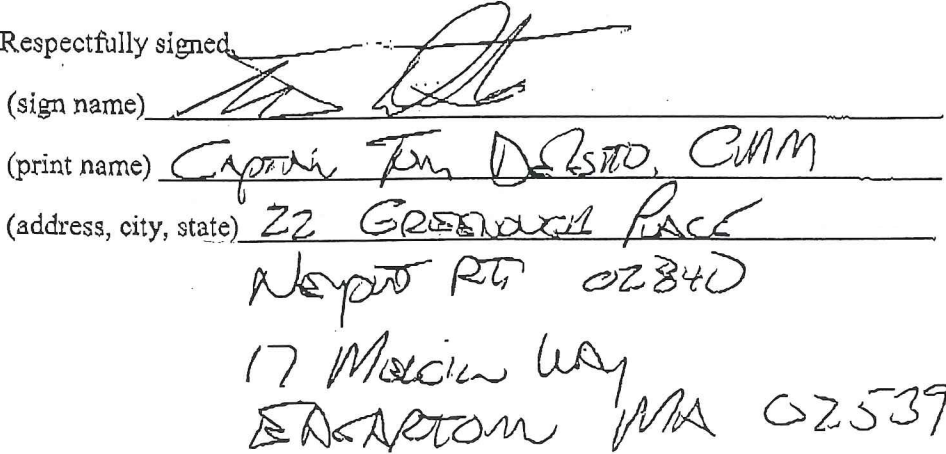 Respectfully signed,
(sign name)
(print name) Captain Tom DeResto, CMM
(address, city, state) 22 GREENOUGH PLACE
Newport RI 02840
17 Way
EDGARTOWN MA 02539